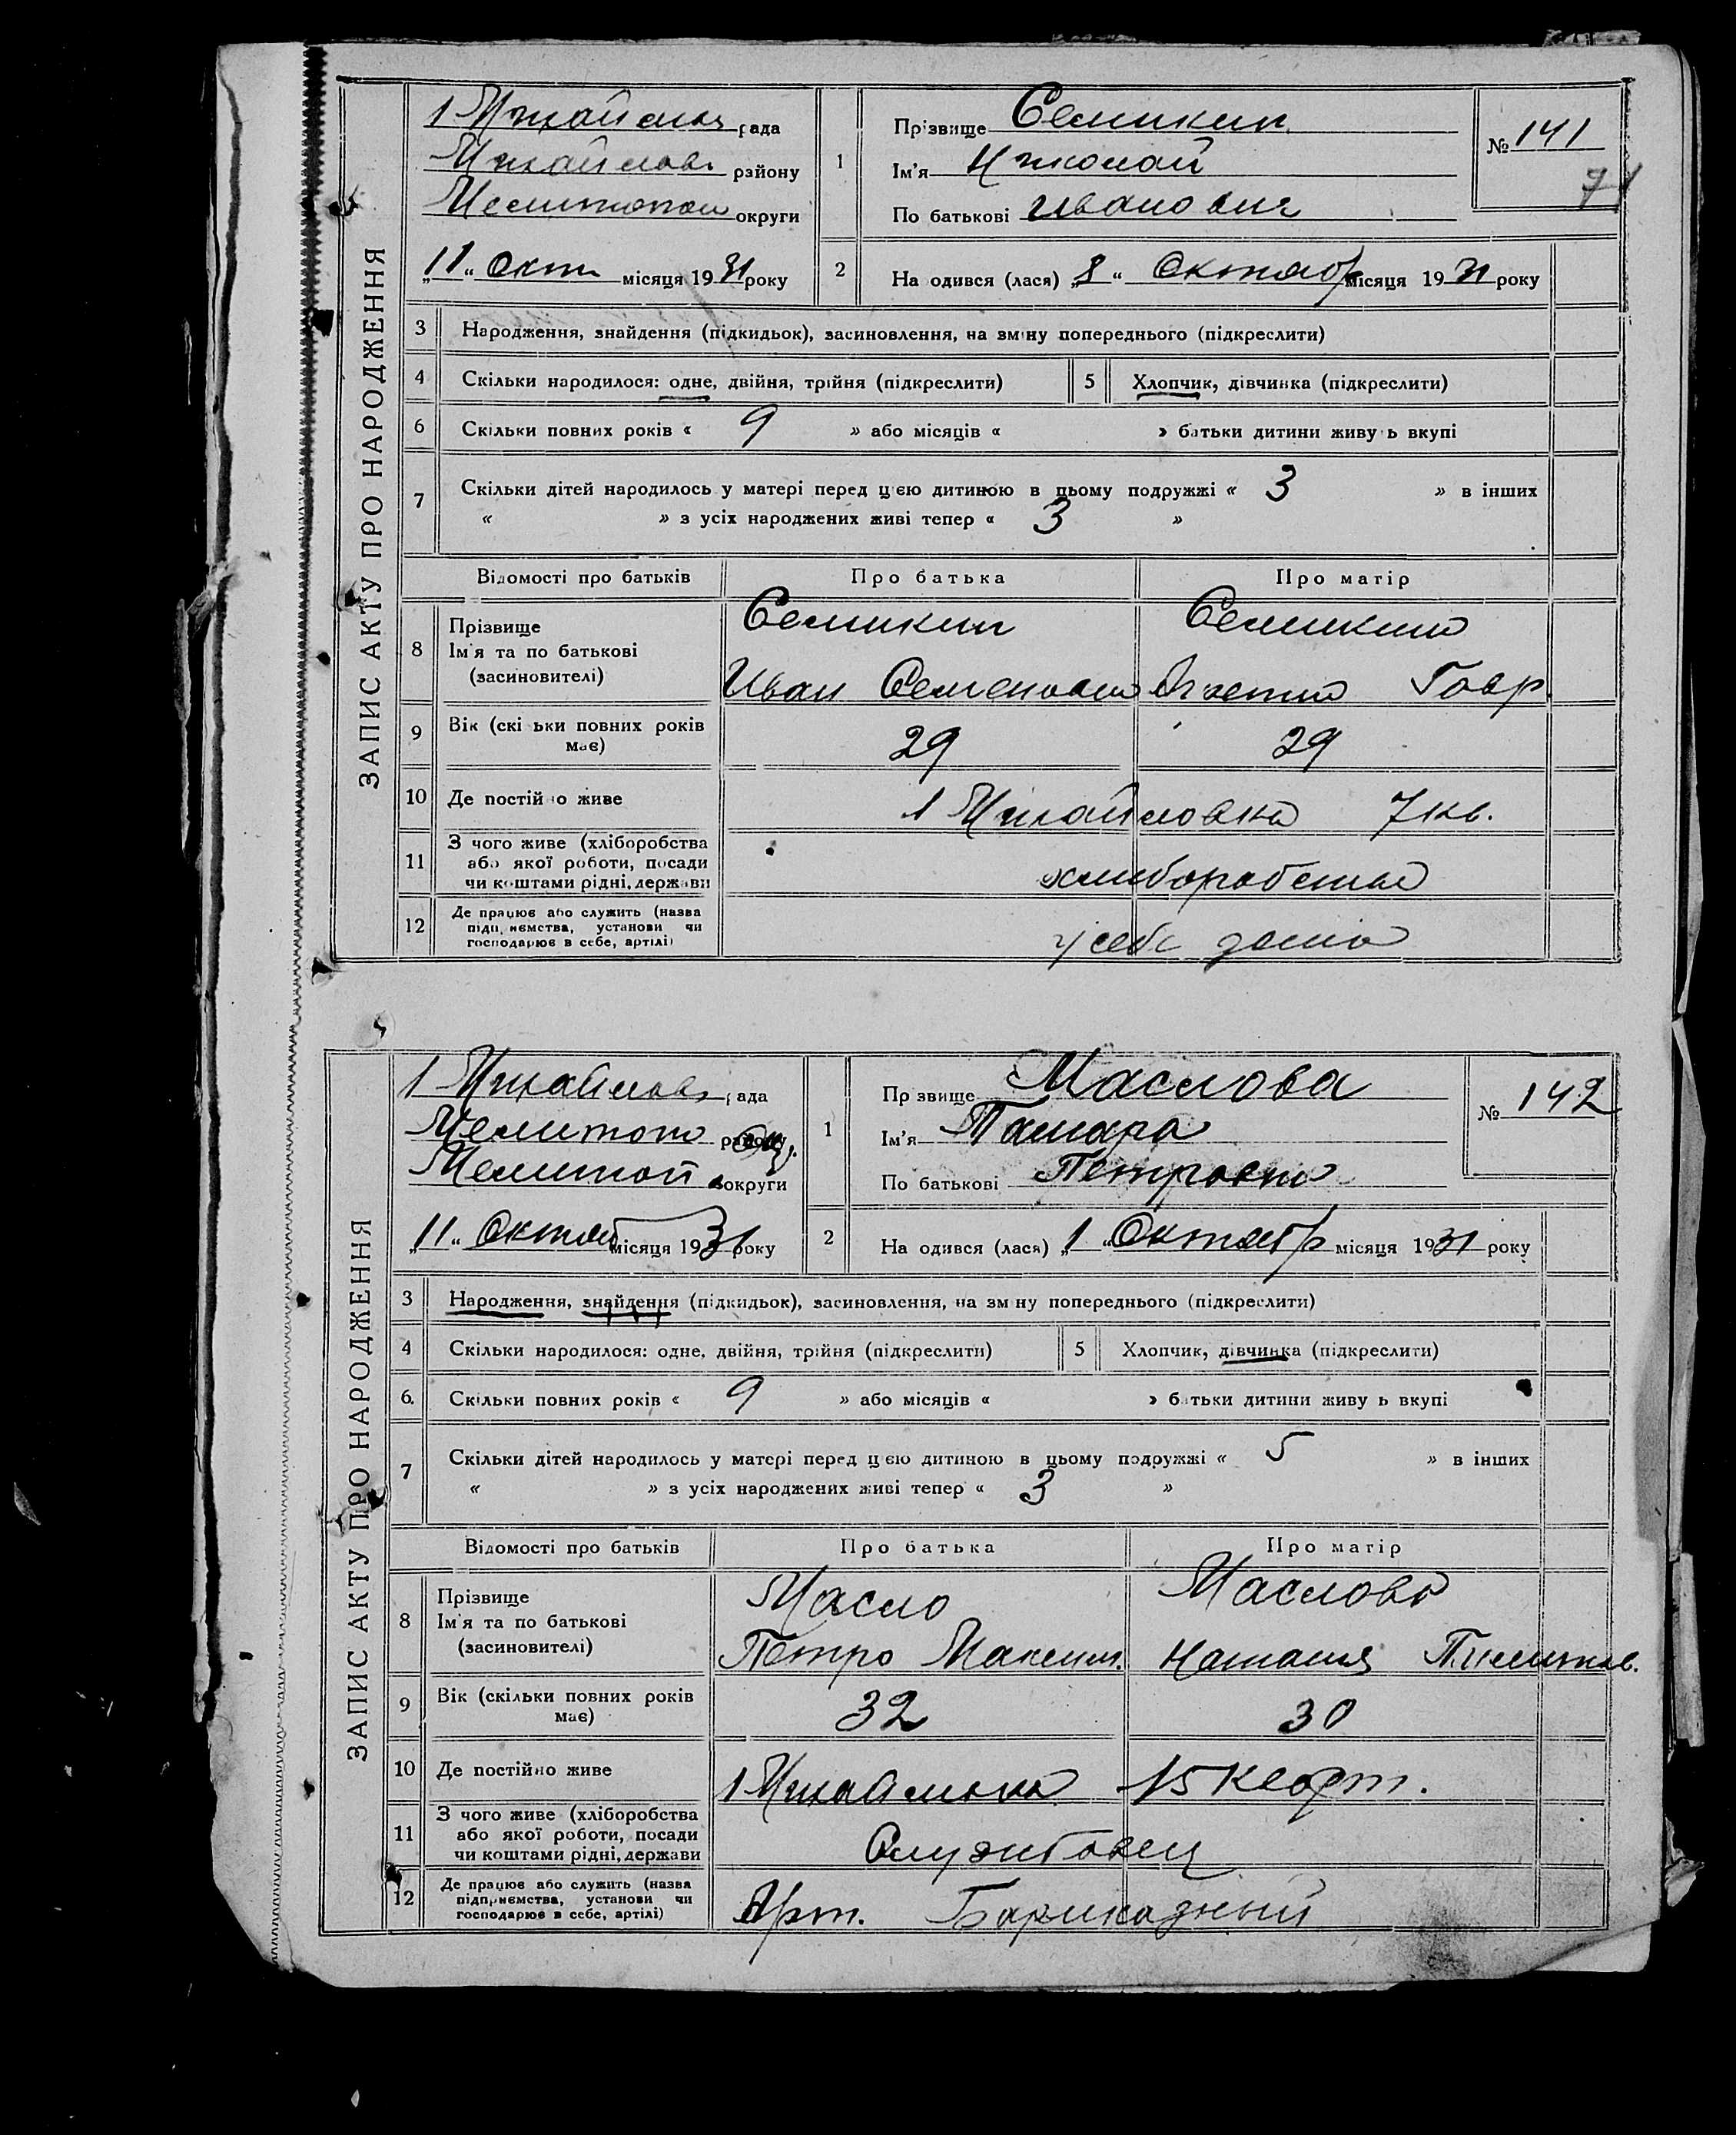 ЗАПИС АКТУ ПРО НАРОДЖЕННЯ
1 Михайлівська рада
Михайлов. району
Мелитопол округи
„11“ Окт. місяця 1931 року
1 Прізвище Семикин
Ім'я Николай
По батькові Иванович
№ 141
71
2 На одився (лася) „8“ Октябр місяця 1931 року
3 Народження, знайдення (підкидьок), засиновлення, на зміну попереднього (підкреслити)
4 Скільки народилося: одне, двійня, трійня (підкреслити) 5 Хлопчик, дівчинка (підкреслити)
6 Скільки повних років « 9 » або місяців « » батьки дитини живу ь вкупі
7 Скільки дітей народилось у матері перед цією дитиною в цьому подружжі « 3 » в інших
« » з усіх народжених живі тепер « 3 »
Відомості про батьків Про батька Про матір
8 Прізвище
Ім'я та по батькові
(засиновителі)
Семикин Семикина
Иван Семенович Гавр.
9 Вік (скі ьки повних років має) 29 29
10 Де постійно живе 1 Михайловка 7 кв.
11 З чого живе (хліборобства
або якої роботи, посади
чи коштами рідні, держави
хлиборобство
12 Де працює або служить (назва
підприємства, установи чи
господарює в себе, артілі)
у себе дома
ЗАПИС АКТУ ПРО НАРОДЖЕННЯ
1 Михайлов. рада
Мелитоп району
Мелитоп округи
„11“ Октяб місяця 1931 року
1 Пр звище Маслова
Ім'я Тамара
По батькові Петровна
№ 142
2 На одився (лася) „1“ Октябр місяця 1931 року
3 Народження, знайдення (підкидьок), засиновлення, на зм ну попереднього (підкреслити)
4 Скільки народилося: одне, двійня, трійня (підкреслити) 5 Хлопчик, дівчинка (підкреслити)
6. Скільки повних років « 9 » або місяців « » батьки дитини живу ь вкупі
7 Скільки дітей народилось у матері перед цією дитиною в цьому подружжі « 5 » в інших
« » з усіх народжених живі тепер « 3 »
Відомості про батьків Про батька Про матір
8 Прізвище
Ім'я та по батькові
(засиновителі)
Масло Маслова
Петро Максим. Наталия
9 Вік (скільки повних років має) 32 30
10 Де постійно живе 1 Михайловка 15 кварт.
11 З чого живе (хліборобства
або якої роботи, посади
чи коштами рідні, держави
Службовец
12 Де працює або служить (назва
підприємства, установи чи
господарює в себе, артілі)
Арт. Барикадный